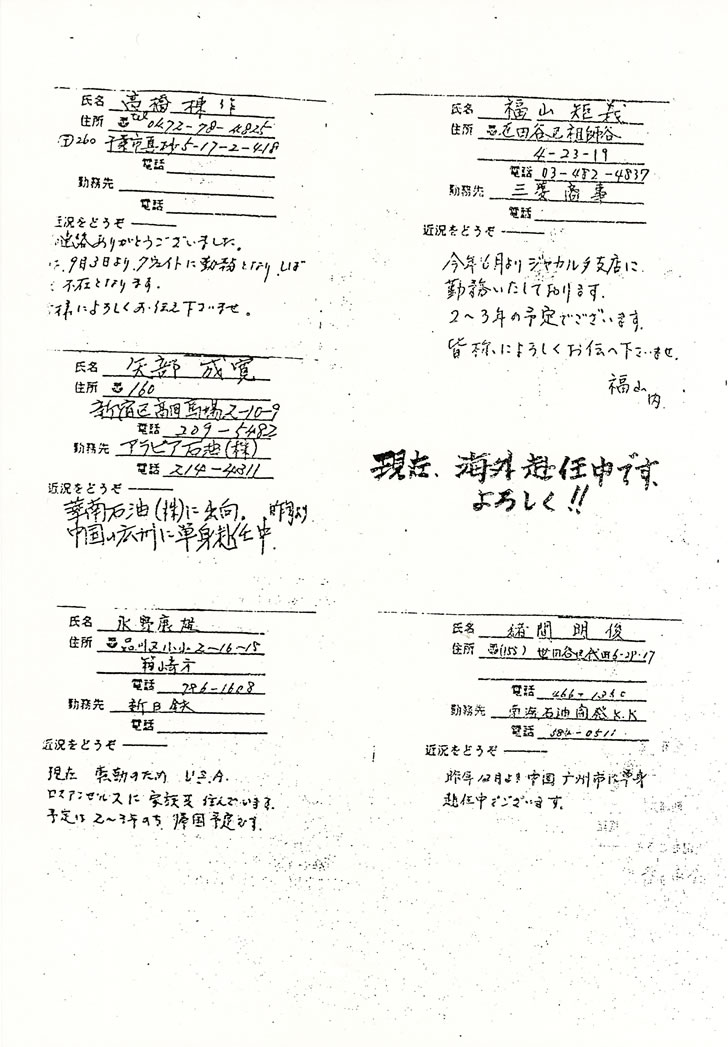 氏名 高橋棟作
住所 ☎ Tel 0472-78-4825
〒260 千葉市真砂5-17-2-418
電話
勤務先
電話
近況をどうぞ
連絡ありがとうございました。
9月3日より、クウェイトに勤務となり、しば
不在となります。
様によろしくお伝え下さいませ。
氏名 矢部 成寛
住所 160
新宿区高田馬場2-10-9
電話 209-5482
勤務先 アラビア石油(株)
電話 214-4311
近況をどうぞ
華南石油(株)に出向。昨年より
中国の広州に単身赴任中
氏名 永野康雄
住所 品川区小山2-16-15
電話 786-1608
勤務先 新日鉄
電話
近況をどうぞ
現在 転勤のため U.S.A.
ロスアンゼルスに家族共住んでいます。
予定は2〜3年のち 帰国予定です。
氏名 福山矩義
住所 世田谷区祖師谷
4-23-19
電話 03-482-4837
勤務先 三菱商事
電話
近況をどうぞ
今年6月よりジャカルタ支店に
勤務いたしております。
2〜3年の予定でございます。
皆様によろしくお伝へ下さいませ。
福山内
現在、海外赴任中です。
よろしく!!
氏名 緒間 明俊
住所 (155) 世田谷区代田6-29-17
電話
勤務先 南海石油開発K.K
電話 584-0511
近況をどうぞ
昨年12月より中国広州市に単身
赴任中でございます。